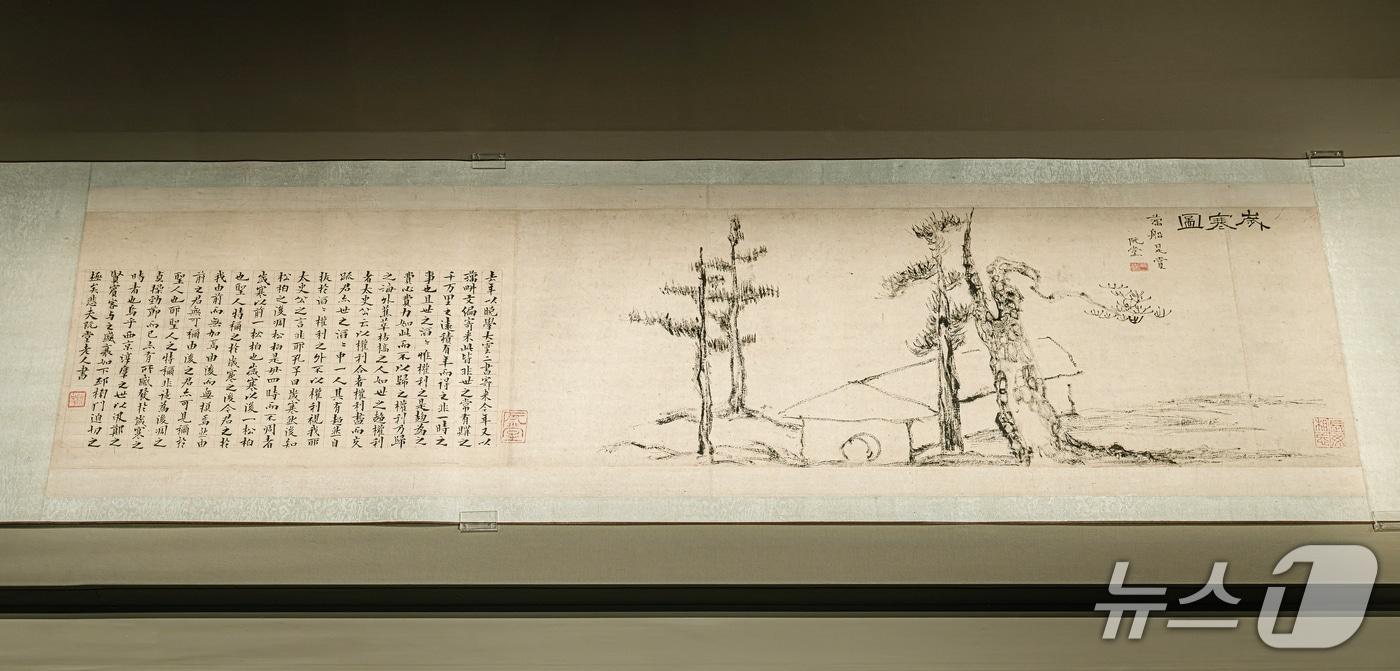 歲寒圖
藕船是賞
阮堂
去年以晩學大雲二書寄來今年又以
藕畊文編寄來此皆非世之常有購之
千万里之遠積有年而得之非一時之
事也且世之滔〻惟權利之是趨爲之
費心費力如此而不以歸之權利乃歸
之海外蕉萃枯槁之人如世之趨權利
者太史公云以權利合者權利盡而交
踈君亦世之滔〻中一人其有超然自
拔於滔〻權利之外不以權利視我耶
太史公之言非耶孔子曰歲寒然後知
松栢之後凋松栢是毋四時而不凋者
歲寒以前一松栢也歲寒以後一松栢
也聖人特稱之於歲寒之後今君之於
我由前而無加焉由後而無損焉然由
前之君無可稱由後之君亦可見稱於
聖人也耶聖人之特稱非徒爲後凋之
貞操勁節而已亦有所感發於歲寒之
時者也烏乎西京淳厚之世以汲鄭之
賢賓客與之盛衰如下邳榜門迫切之
極矣悲夫阮堂老人書
뉴스1